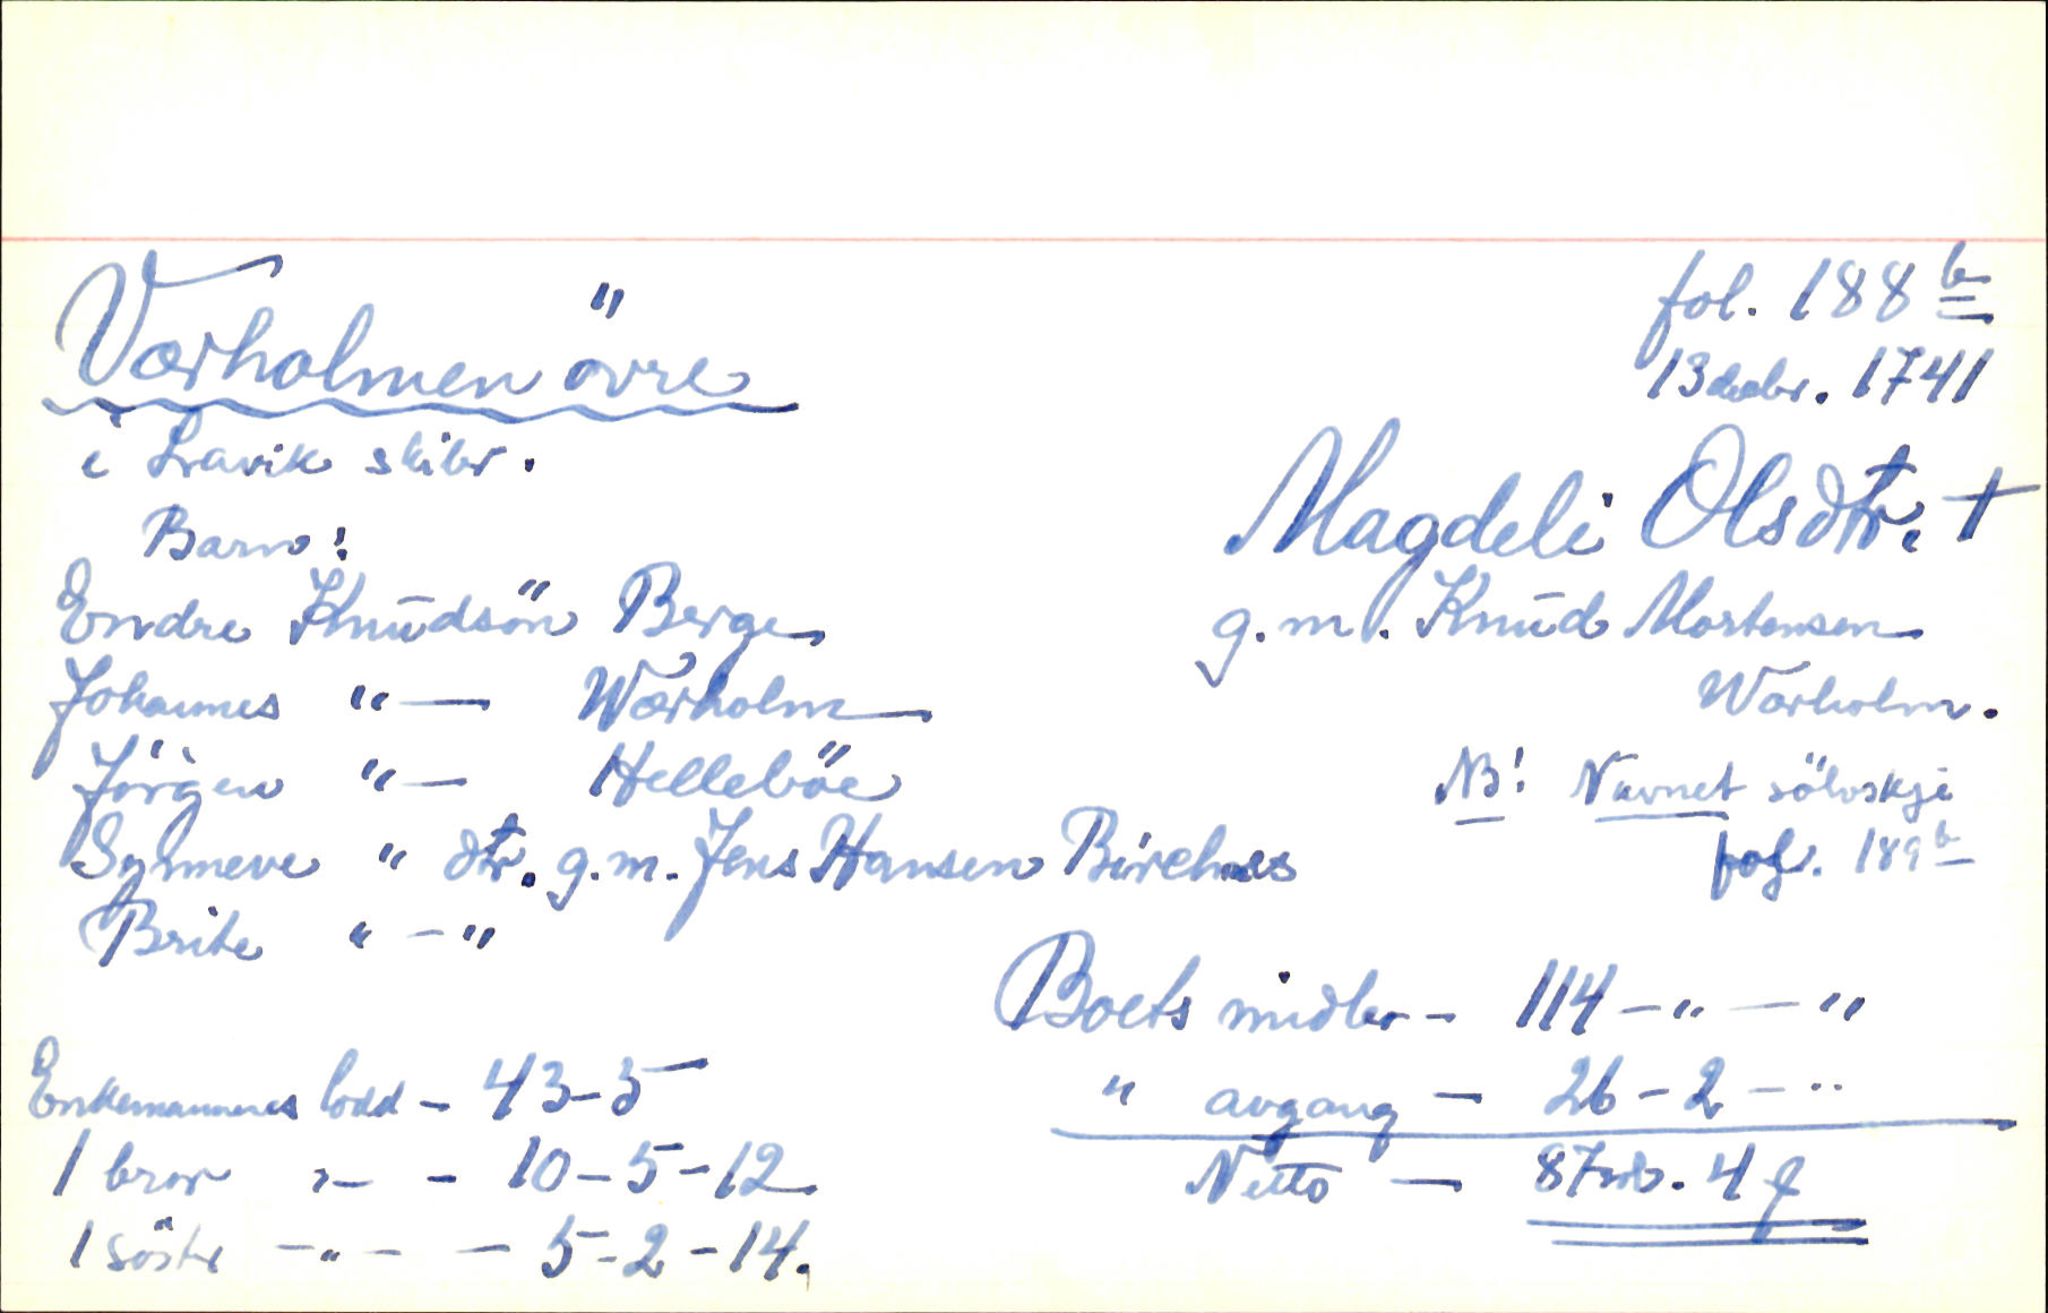 Værholmen övre
i Lravik skibr.
Barn:
Endre Knudsön Berge
Johannes " — Wærholm
Jörgen " — Helleböe
Synneve " dtr. g.m. Jens Hansen Birchnes
Brite " - "
Enkemannens lodd - 43-5
1 bror " - 10-5-12
1 söster - " - - 5-2-14.
fol. 188 b
13 decbr. 1741
Magdeli Olsdtr. †
g.m. Knud Mortensen
Wærholm.
NB! Nævnet sölvskje
fol. 189 b
Boets midler - 114 - " - "
" avgang - 26-2 - "
Netto - 87 rd. 4 f